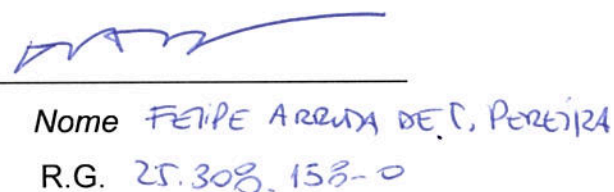 Nome FELIPE ARRUDA DE C. PEREIRA
R.G. 25.308.158-0